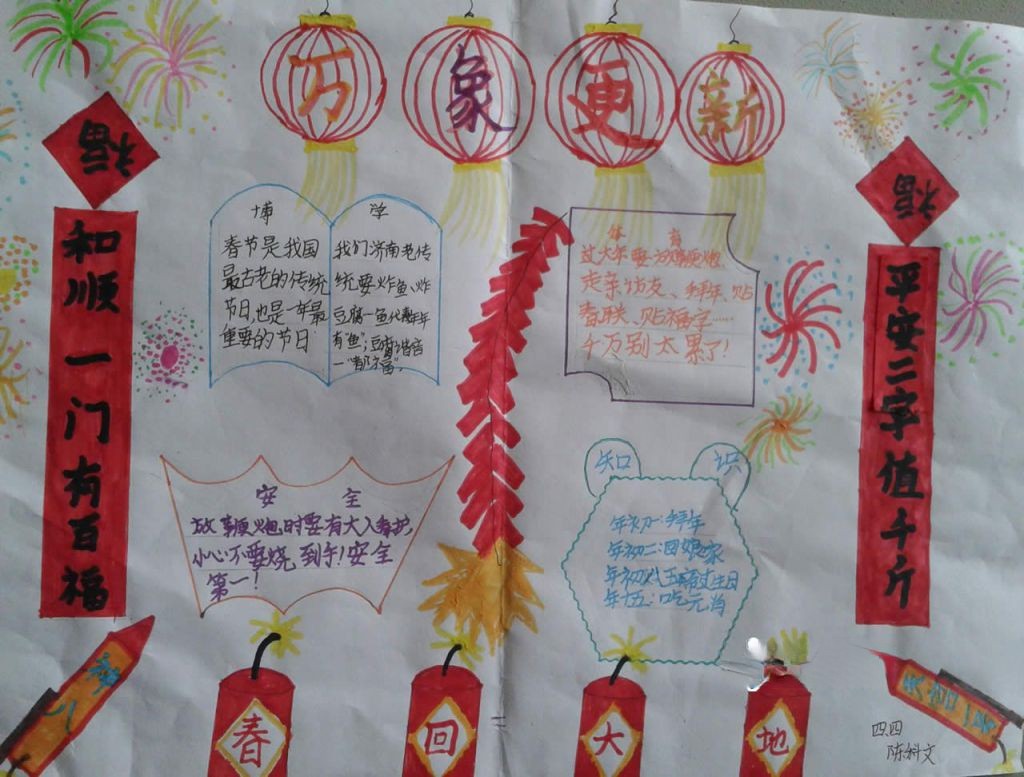 万象更新
福
和顺一门有百福
福
平安二字值千斤
博学
春节是我国
最古老的传统
节日,也是一年最
重要的节日
我们济南老传
统要炸鱼、炸
豆腐—鱼代表年年
有"鱼";豆腐谐音
—"都福"。
体育
过大年要放鞭炮、
走亲访友、拜年、贴
春联、贴福字……
千万别太累了!
安全
放鞭炮时要有大人看护,
小心不要烧到手!安全
第一!
知识
年初一:拜年
年初二:回娘家
年初八:玉帝过生日
年十五:吃元宵
春回大地
四.四
陈科文